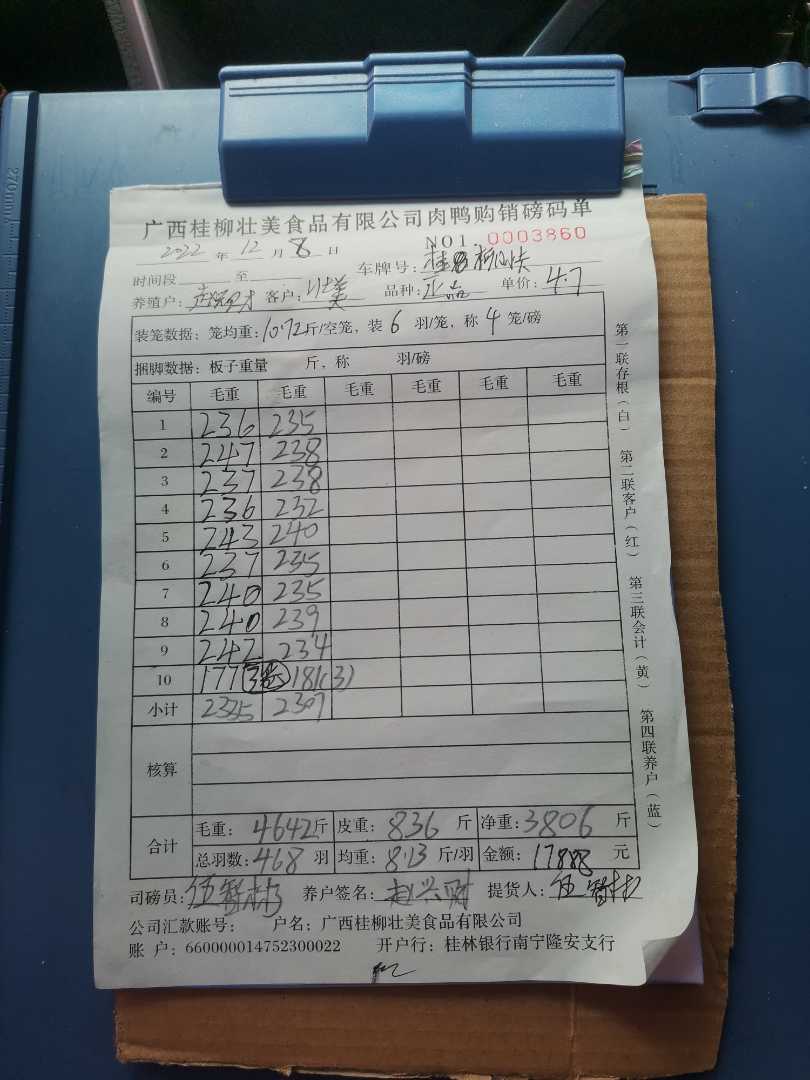 广西桂柳壮美食品有限公司肉鸭购销磅码单
2022 年 12 月 8 日 NO1. 0003860
时间段 至 车牌号: 桂
养殖户: 客户: 壮美 品种: 单价: 4.7
装笼数据: 笼均重: 10.72 斤/空笼, 装 6 羽/笼, 称 4 笼/磅
捆脚数据: 板子重量 斤, 称 羽/磅
编号 毛重 毛重 毛重 毛重 毛重 毛重
1 236 235
2 247 238
3 237 238
4 236 232
5 243 240
6 237 235
7 240 235
8 240 239
9 242 234
10 177 181(3)
小计 2335 2307
核算
合计 毛重: 4642 斤 皮重: 836 斤 净重: 3806 斤
总羽数: 468 羽 均重: 8.13 斤/羽 金额: 17888 元
司磅员: 养户签名: 赵兴财 提货人:
公司汇款账号: 户名: 广西桂柳壮美食品有限公司
账 户: 660000014752300022 开户行: 桂林银行南宁隆安支行
第一联存根(白) 第二联客户(红) 第三联会计(黄) 第四联养户(蓝)
270mm